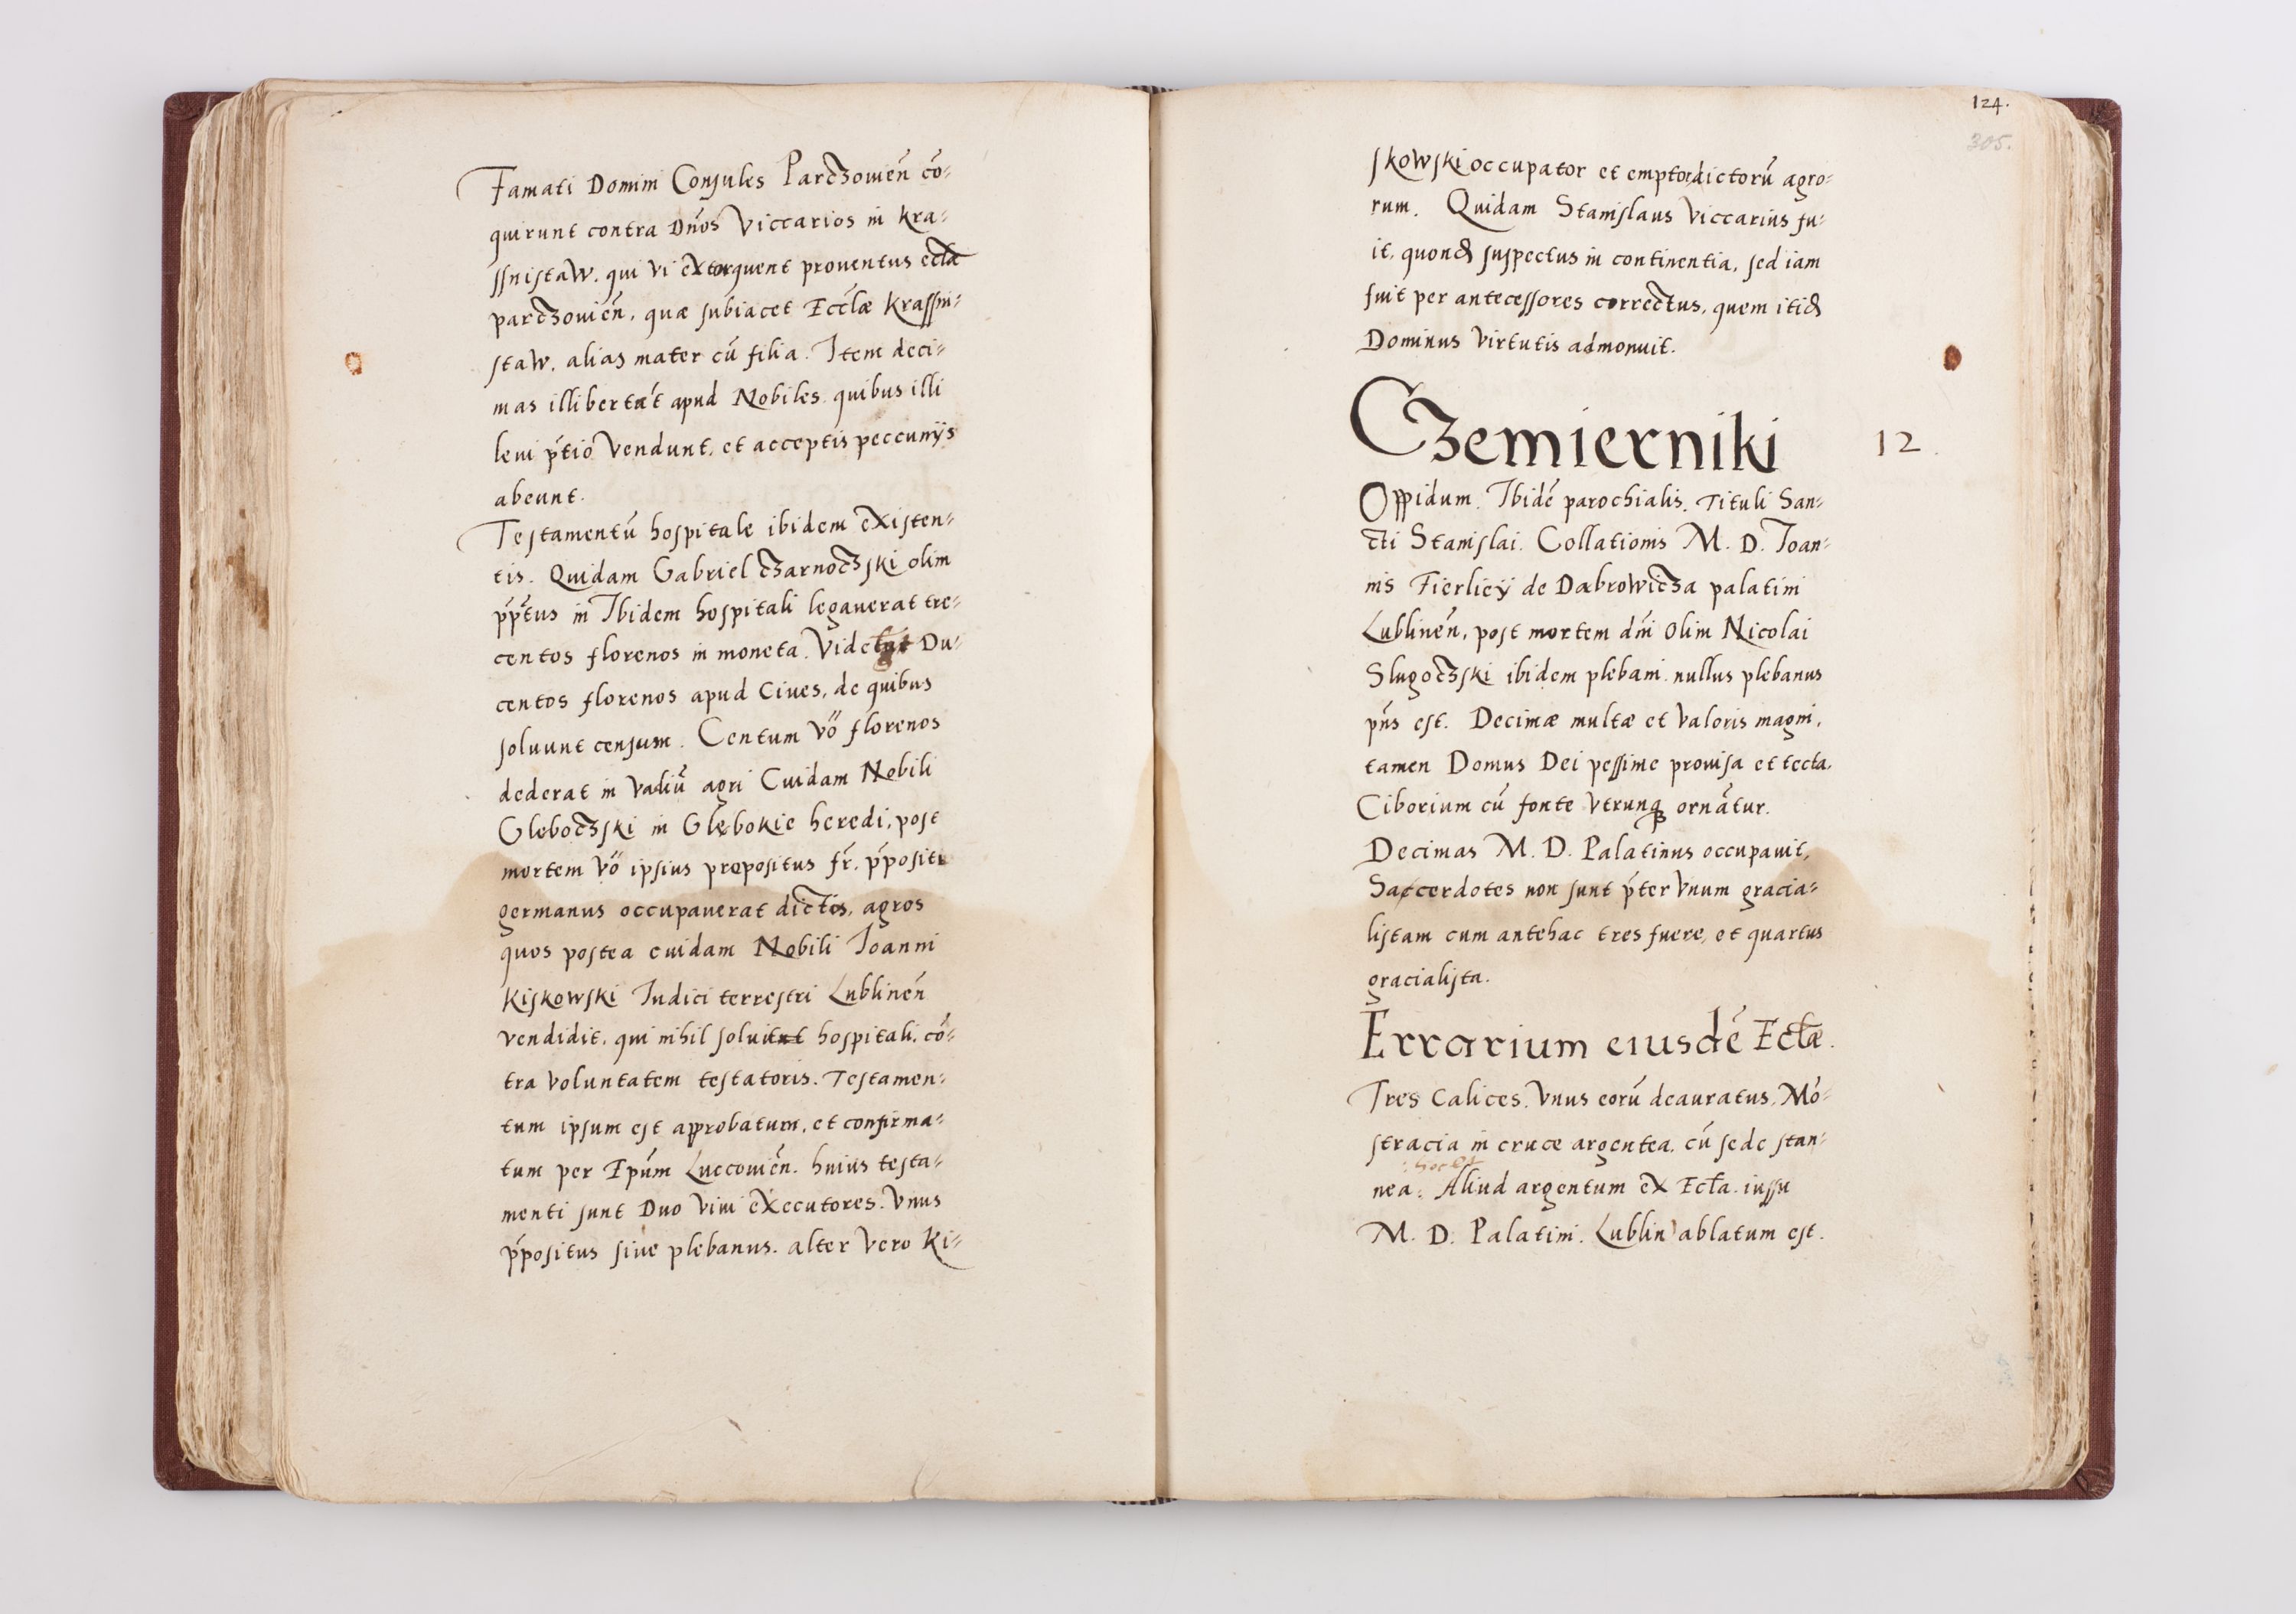 Famati Domini Consules Parczouien̄ cō-
quirunt contra Dn̄os Viccarios in Kra-
ssnistaw. qui vi extorquent prouentus eccłæ
parczouien̄, quæ subiacet Eccłæ Krassni-
staw. alias mater cū filia. Item deci-
mas illibertāt apud Nobiles quibus illi
leui p̄tio vendunt, et acceptis peccunijs
abeunt.
Testamentū hospitale ibidem existen-
tis. Quidam Gabriel Czarnoczski olim
p̄p̄tus in Ibidem hospitali legauerat tre-
centos florenos in moneta. Du-
centos florenos apud Ciues, de quibus
soluunt censum. Centum vō florenos
dederat in vadiū agri Cuidam Nobili
Głeboczski in Głębokie heredi, post
mortem vō ipsius propositus fr̄. p̄positi
germanus occupauerat dictos, agros
quos postea cuidam Nobili Ioanni
Kiskowski Iudici terrestri Lublinen̄
vendidit, qui nihil soluit hospitali, cō-
tra voluntatem testatoris. Testamen-
tum ipsum est approbatum, et confirma-
tum per Ep̄um Luccouien̄. huius testa-
menti sunt Duo viui executores. Vnus
p̄positus siue plebanus. alter vero Ki-
124.
305.
skowski occupator et emptor dictorū agro-
rum. Quidam Stanislaus Viccarius fu-
it, quondā suspectus in continentia, sed iam
fuit per antecessores correctus, quem itidē
Dominus Virtutis admonuit.
Czemierniki
12
Oppidum. Ibidē parochialis. Tituli San-
cti Stanislai. Collationis M. D. Ioan-
nis Fierliey de Dabrowicza palatini
Lublinen̄, post mortem dn̄i olim Nicolai
Slugoczski ibidem plebani. nullus plebanus
pn̄s est. Decimæ multæ et valoris magni,
tamen Domus Dei pessime prouisa et tecta.
Ciborium cū fonte vtrunq̨ ornātur.
Decimas M. D. Palatinus occupauit,
Saccerdotes non sunt p̄ter vnum gracia-
listam cum antehac tres fuere, et quartus
gracialista.
Errarium eiusdē Eccłæ.
Tres Calices. Vnus eorū deauratus. Mō-
stracia in cruce argentea, cū sede stan-
nea: Aliud argentum ex Eccła. iussu
M. D. Palatini. Lublin ablatum est.